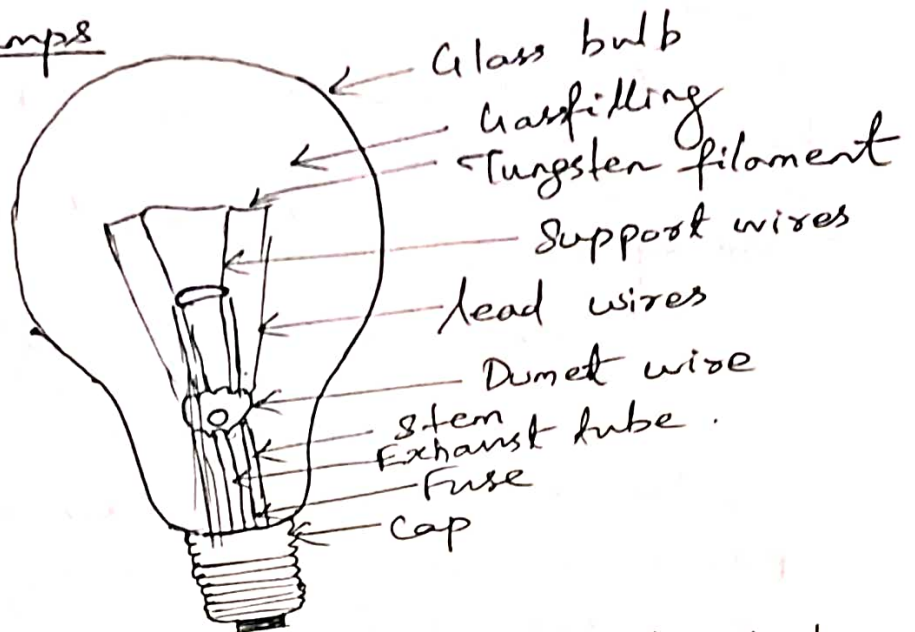 mps
Glass bulb
Gasfilling
Tungsten filament
Support wires
lead wires
Dumet wire
Stem
Exhaust tube.
Fuse
Cap